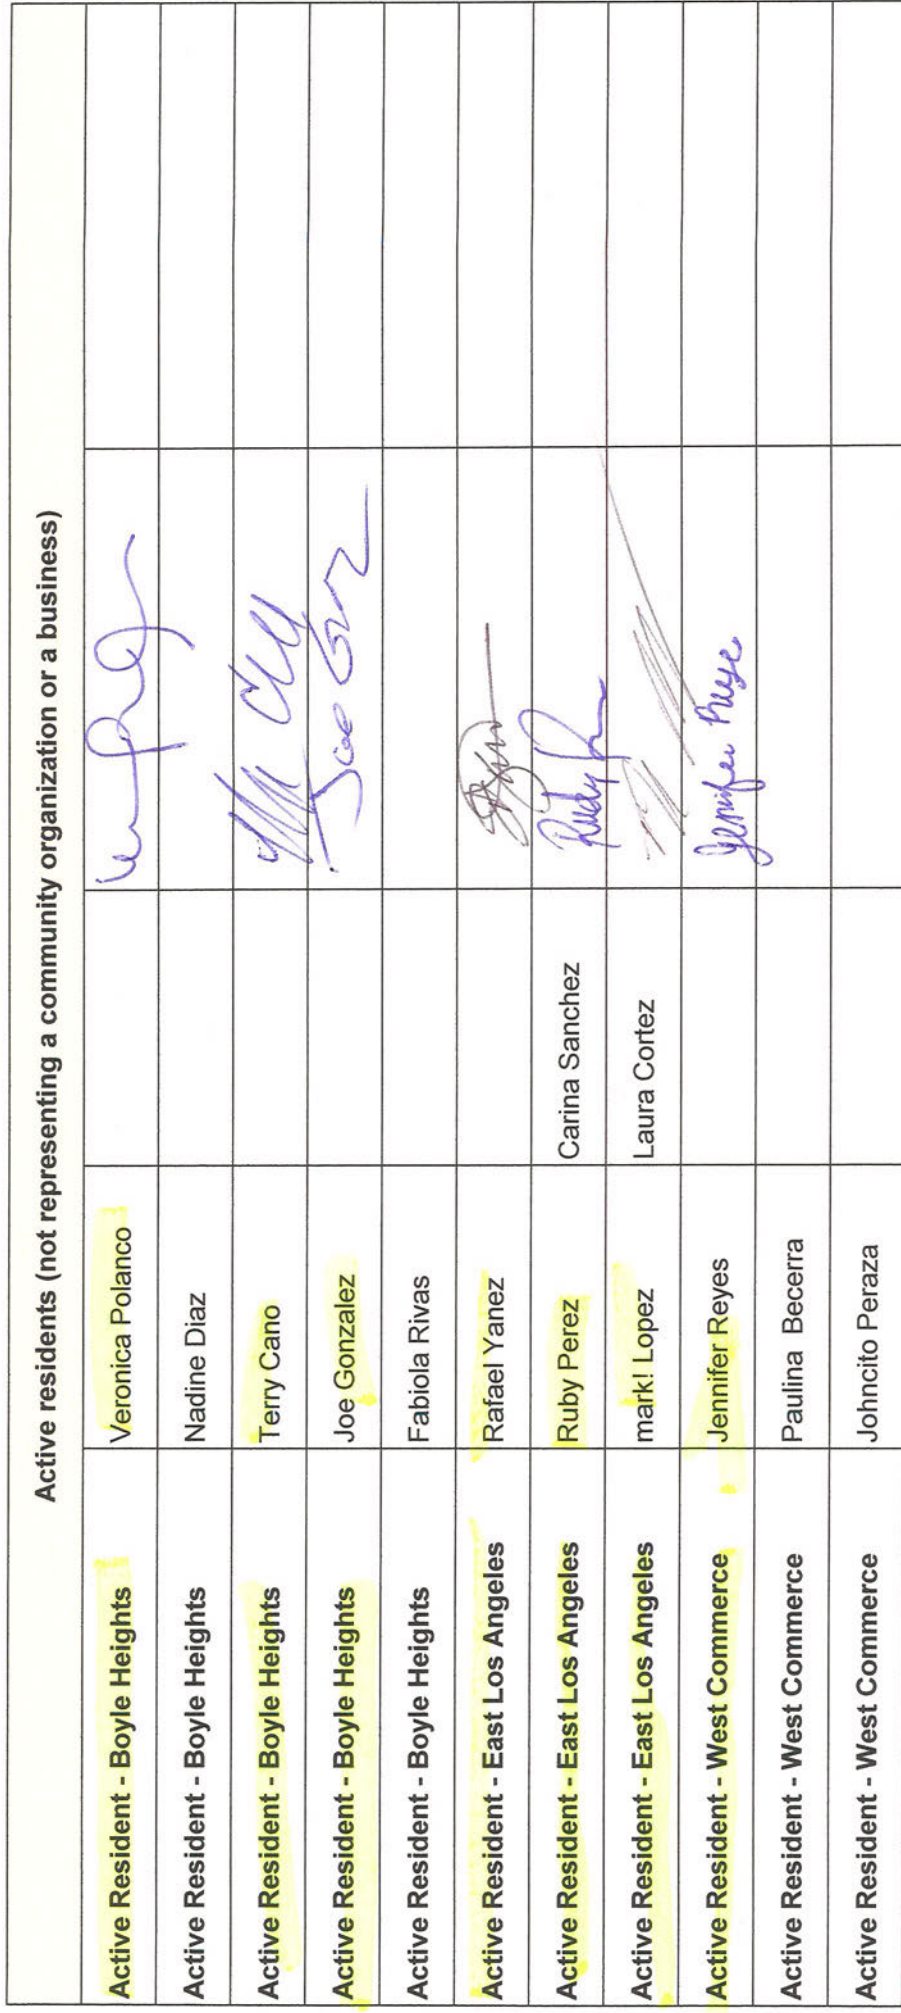 Active residents (not representing a community organization or a business)
Active Resident - Boyle Heights Veronica Polanco
Active Resident - Boyle Heights Nadine Diaz
Active Resident - Boyle Heights Terry Cano
Active Resident - Boyle Heights Joe Gonzalez
Active Resident - Boyle Heights Fabiola Rivas
Active Resident - East Los Angeles Rafael Yanez
Active Resident - East Los Angeles Ruby Perez Carina Sanchez
Active Resident - East Los Angeles mark! Lopez Laura Cortez
Active Resident - West Commerce Jennifer Reyes Jennifer Reyes
Active Resident - West Commerce Paulina Becerra
Active Resident - West Commerce Johncito Peraza